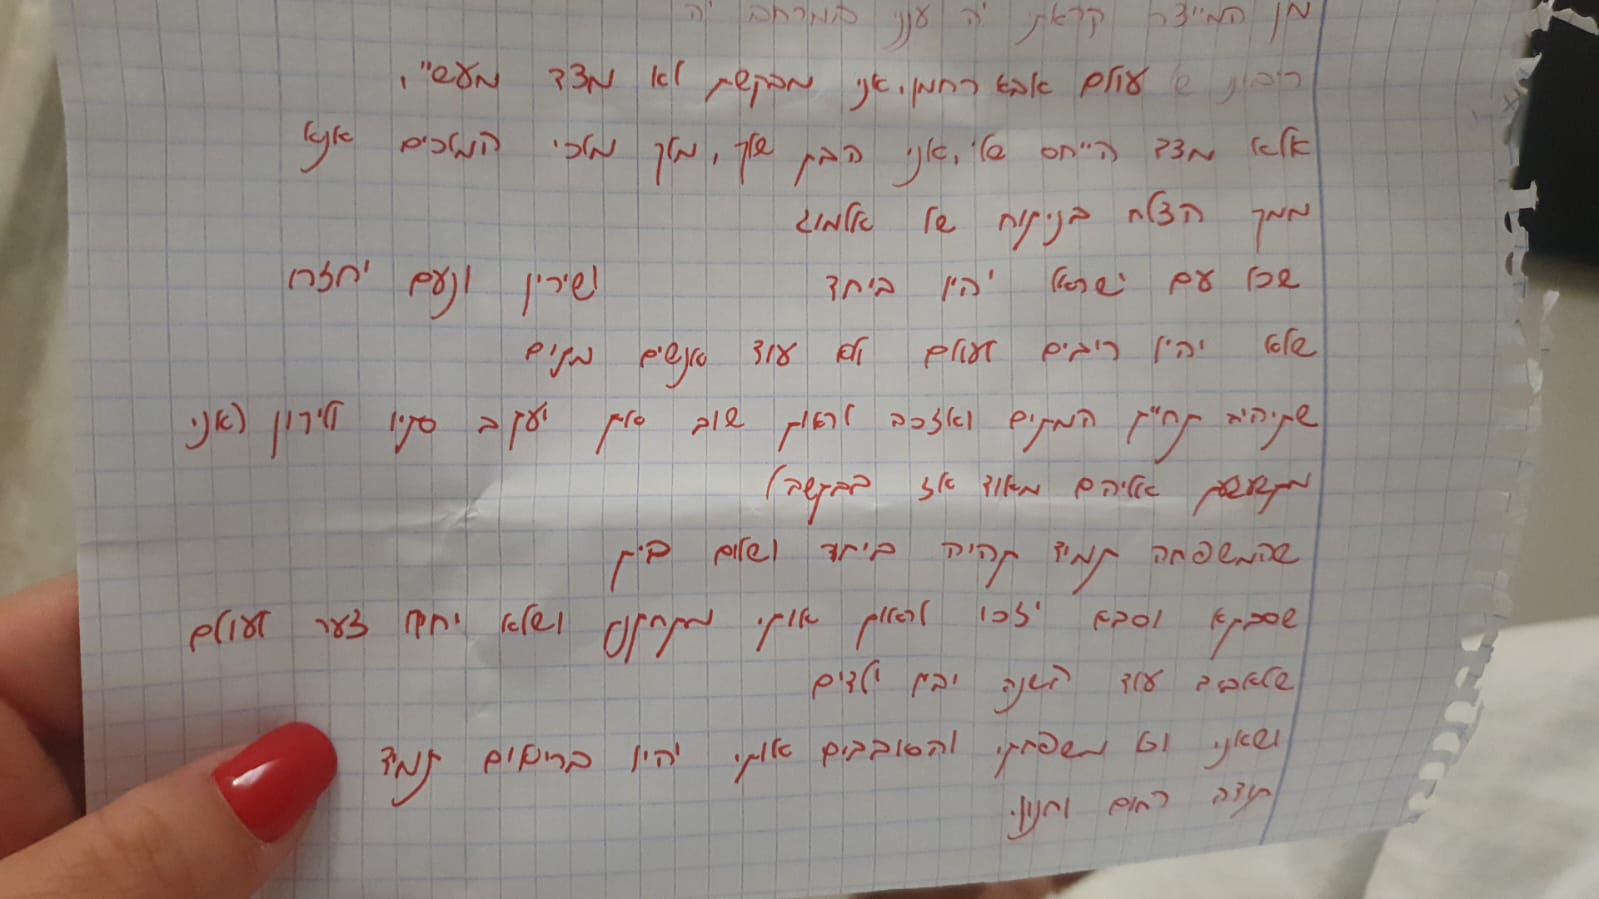 מן המייצר קראתי יה ענני במרחב יה
ריבונו ש עולם אבא רחמן, אני מבקשת לא מצד מעשיי,
אלא מצד הייחס שלי, אני הבת שלך, מלך מלכי המלכים אנא
ממך הצלח בניתוח של אלמוג
שכל עם ישראל יהיו ביחד ושירין ונעם יחזרו
שלא יהיו ריבים לעולם ולא עוד אנשים מתים
שתיהיה תחיית המתים ואזכה לראות שוב את יעקב סתיו ולירון (אני
מתגעגעת אליהם מאוד אז בבקשה)
שהמשפחה תמיד תהיה ביחד ושלום בית
שסבתא וסבא יזכו לראות אותי מתחתנת ושלא יחוו צער לעולם
שלאביב עוד השנה יבוא ילדים
ושאני וכל משפחתי והסובבים אותי יהיו בריאים תמיד
תודה רחום וחנון.